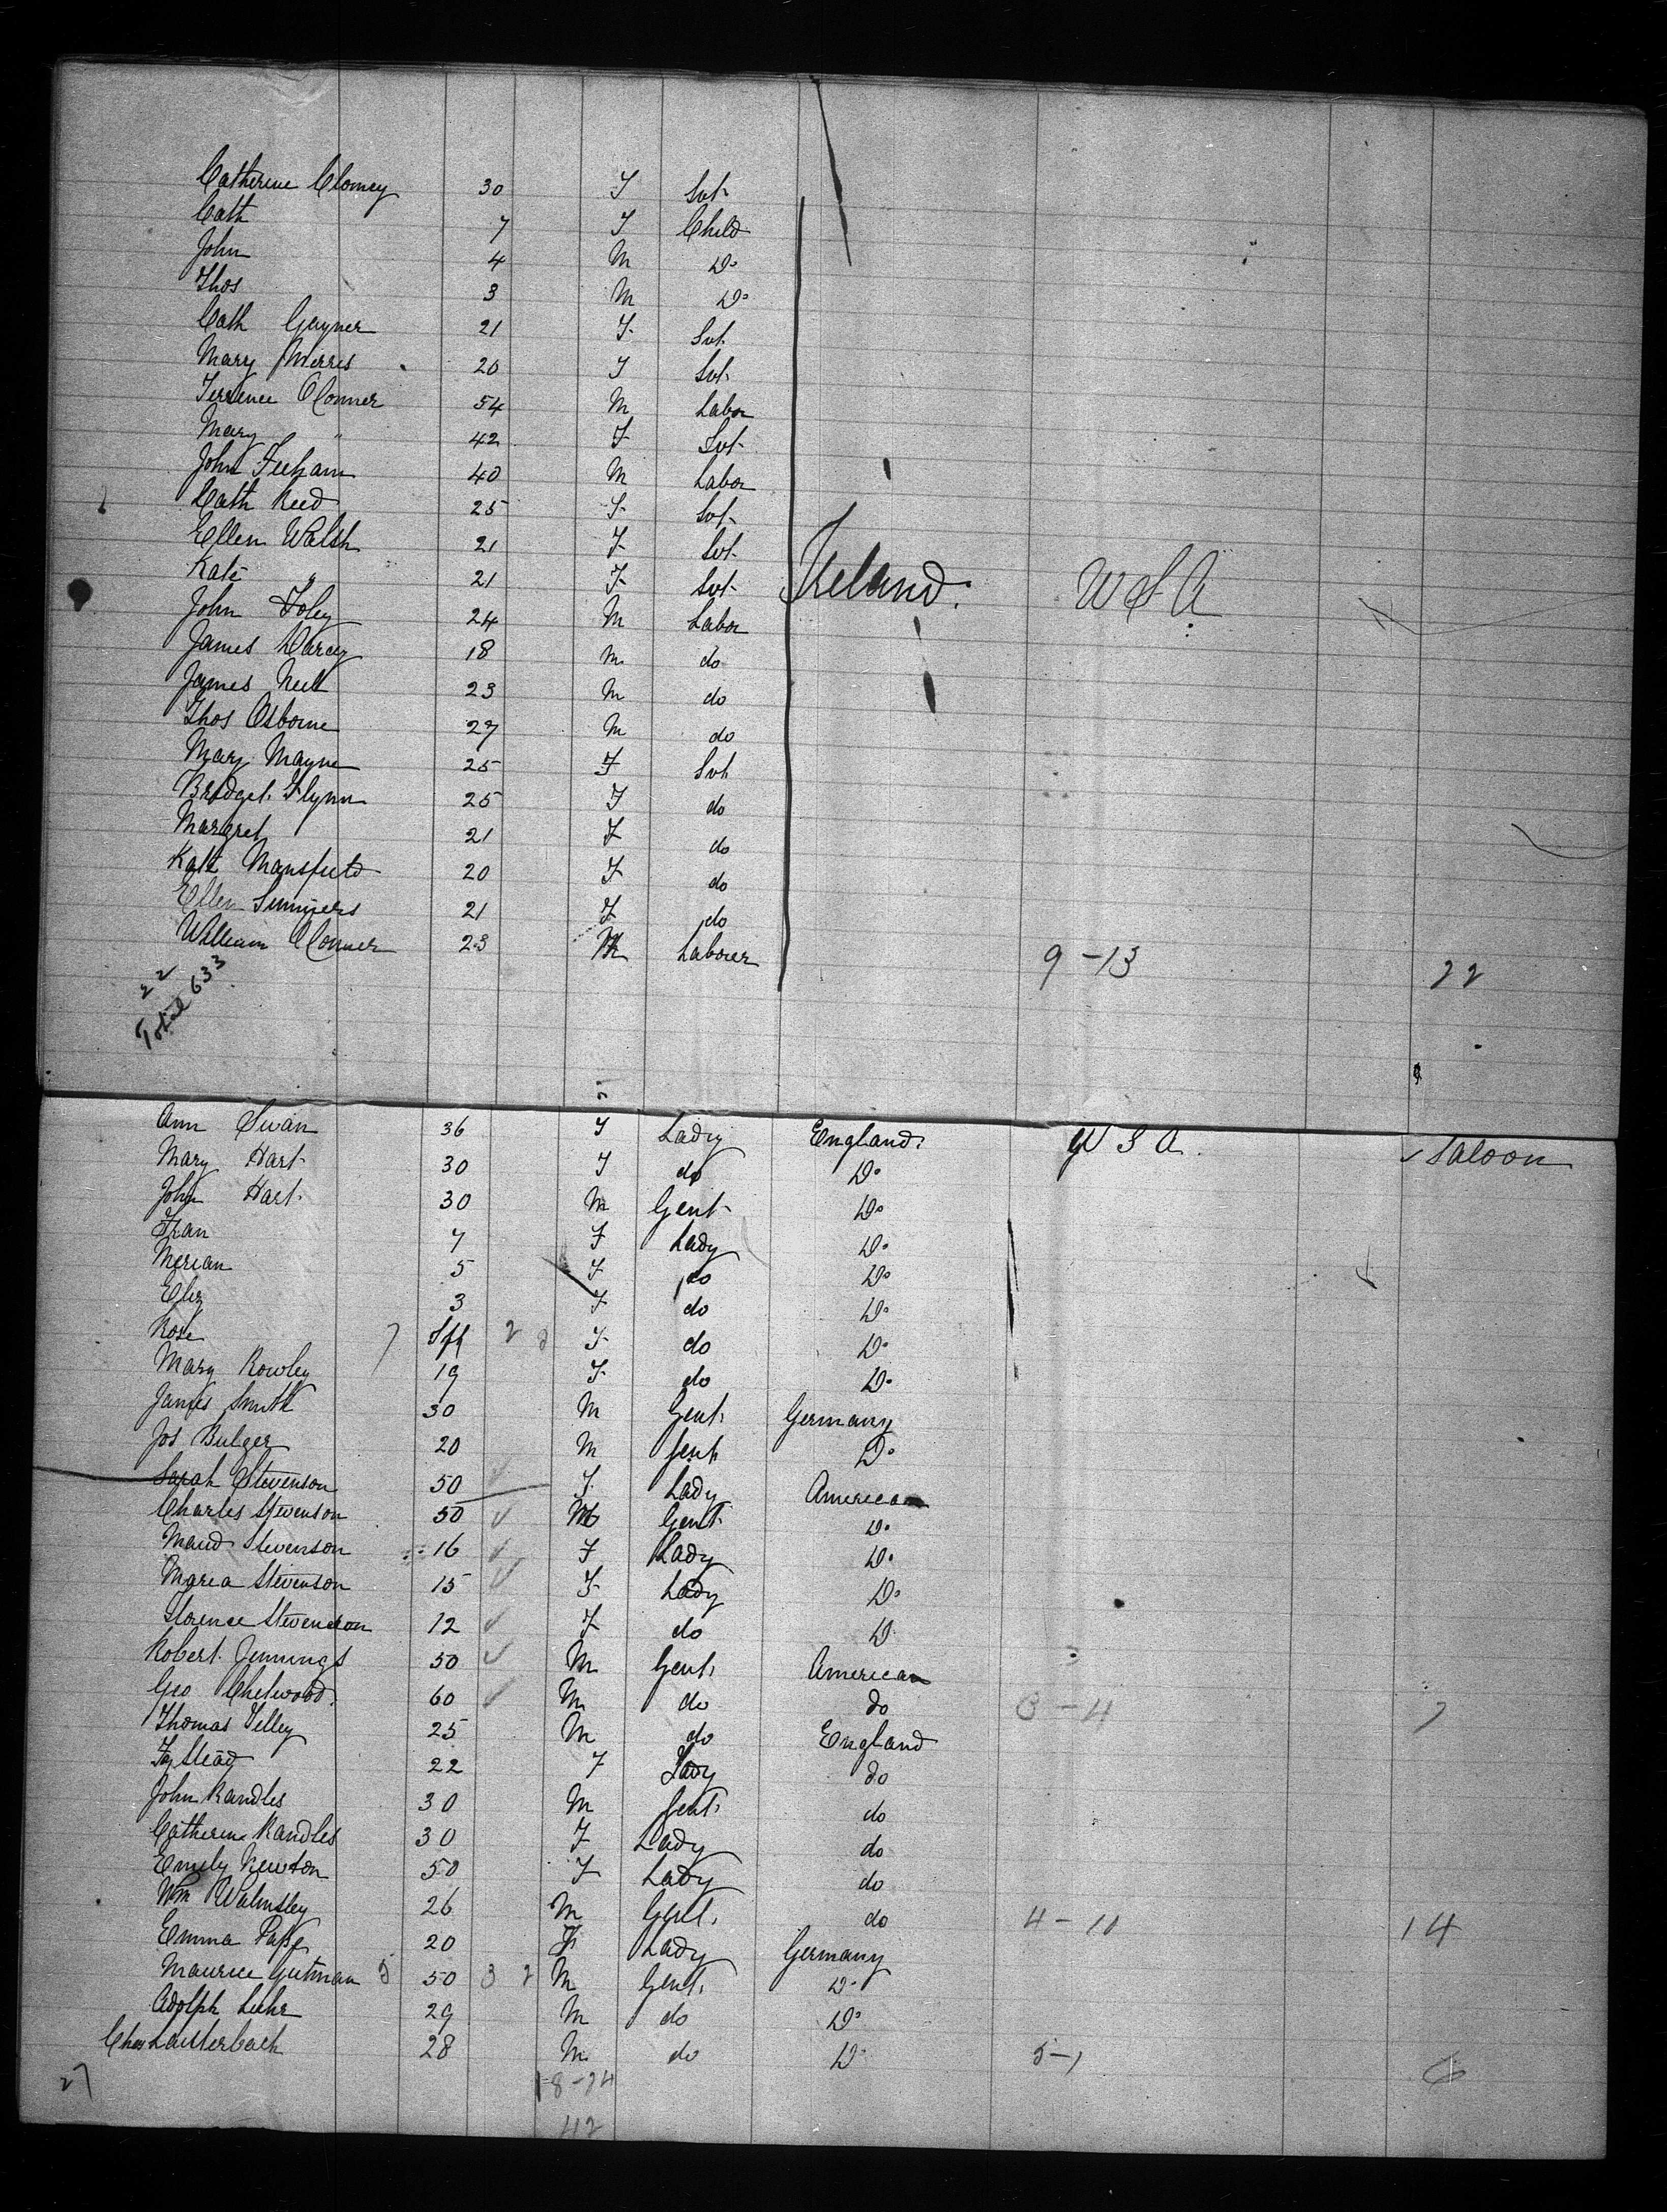 Catherine Clomey 30 F Svt-
Cath 7 F Child
John 4 M Do
Thos 3 M Do
Cath Gayner 21 F Svt-
Mary Merres 20 F Svt-
Terrence OConner 54 M Labor
Mary " 42 F Svt-
John Feehan 40 M Labor
Cath Reed 25 F Svt-
Ellen Walsh 21 F Svt-
Kate " 21 F Svt- Ireland. USA
John Foley 24 M Labor
James Darcey 18 M do
James Neil 23 M do
Thos Osborne 27 M do
Mary Mayne 25 F Svt
Bridget Flynn 25 F do
Margret 21 F do
Kate Mansfield 20 F do
Ellen Summers 21 F do
William Conner 23 M Laborer
9-13 22
22
Total 633
Ann Swan 36 F Lady England. USA. Saloon
Mary Hart 30 F do Do
John Hart. 30 M Gent- Do
Fran 7 F Lady Do
Merian 5 F do Do
Eliz 3 F do Do
Rose 7 Inft 2 F do Do
Mary Rowley 19 F do Do
James Smith 30 M Gent. Germany
Jos Bulger 20 M Gent. Do
Sarah Stevenson 50 F. Lady American
Charles Stevenson 50 M Gent. Do
Maud Stevenson 16 F Lady Do
Maria Stevenson 15 F Lady Do
Florence Stevenson 12 F do Do
Robert Jennings 50 M Gent. American
Geo Chetwood. 60 M do do 3-4 7
Thomas Tilley 25 M do England
Stead 22 F Lady do
John Randles 30 M Gent. do
Catherine Randles 30 F Lady do
Emily Newton 50 F Lady do
Wm Walmsley 26 M Gent. do 4-10 14
Emma Page 20 F Lady Germany
Maurice Gutman 5 50 3 2 M Gent. Do
Adolph Luhr 29 M do Do
Chas Lauterbach 28 M do Do 5-1 6
27 18-24
42